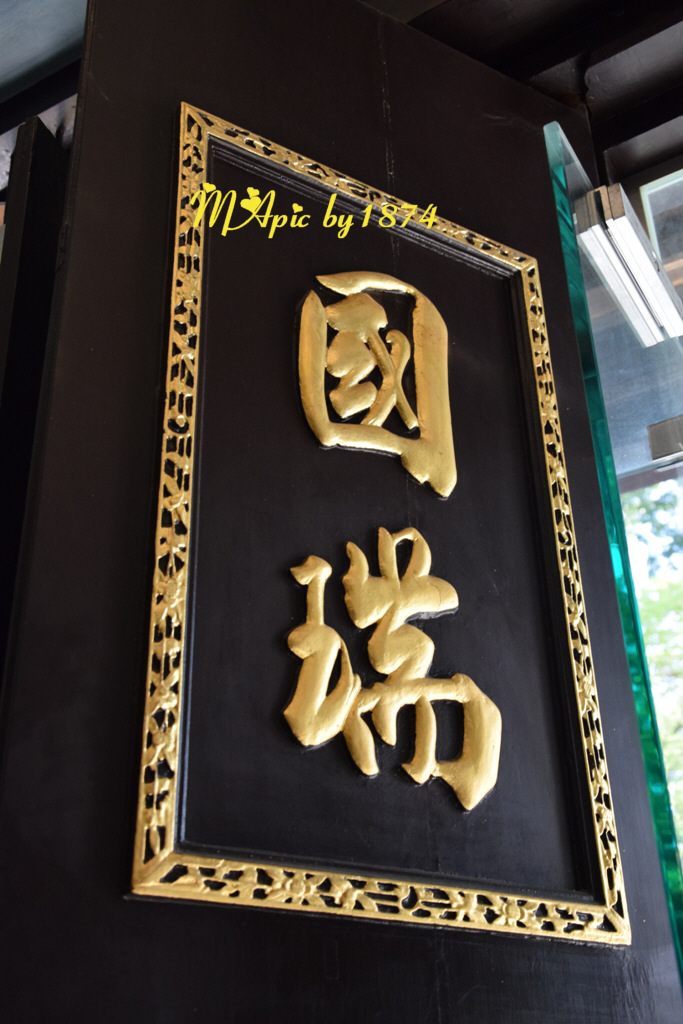 MApic by 1874
國
瑞